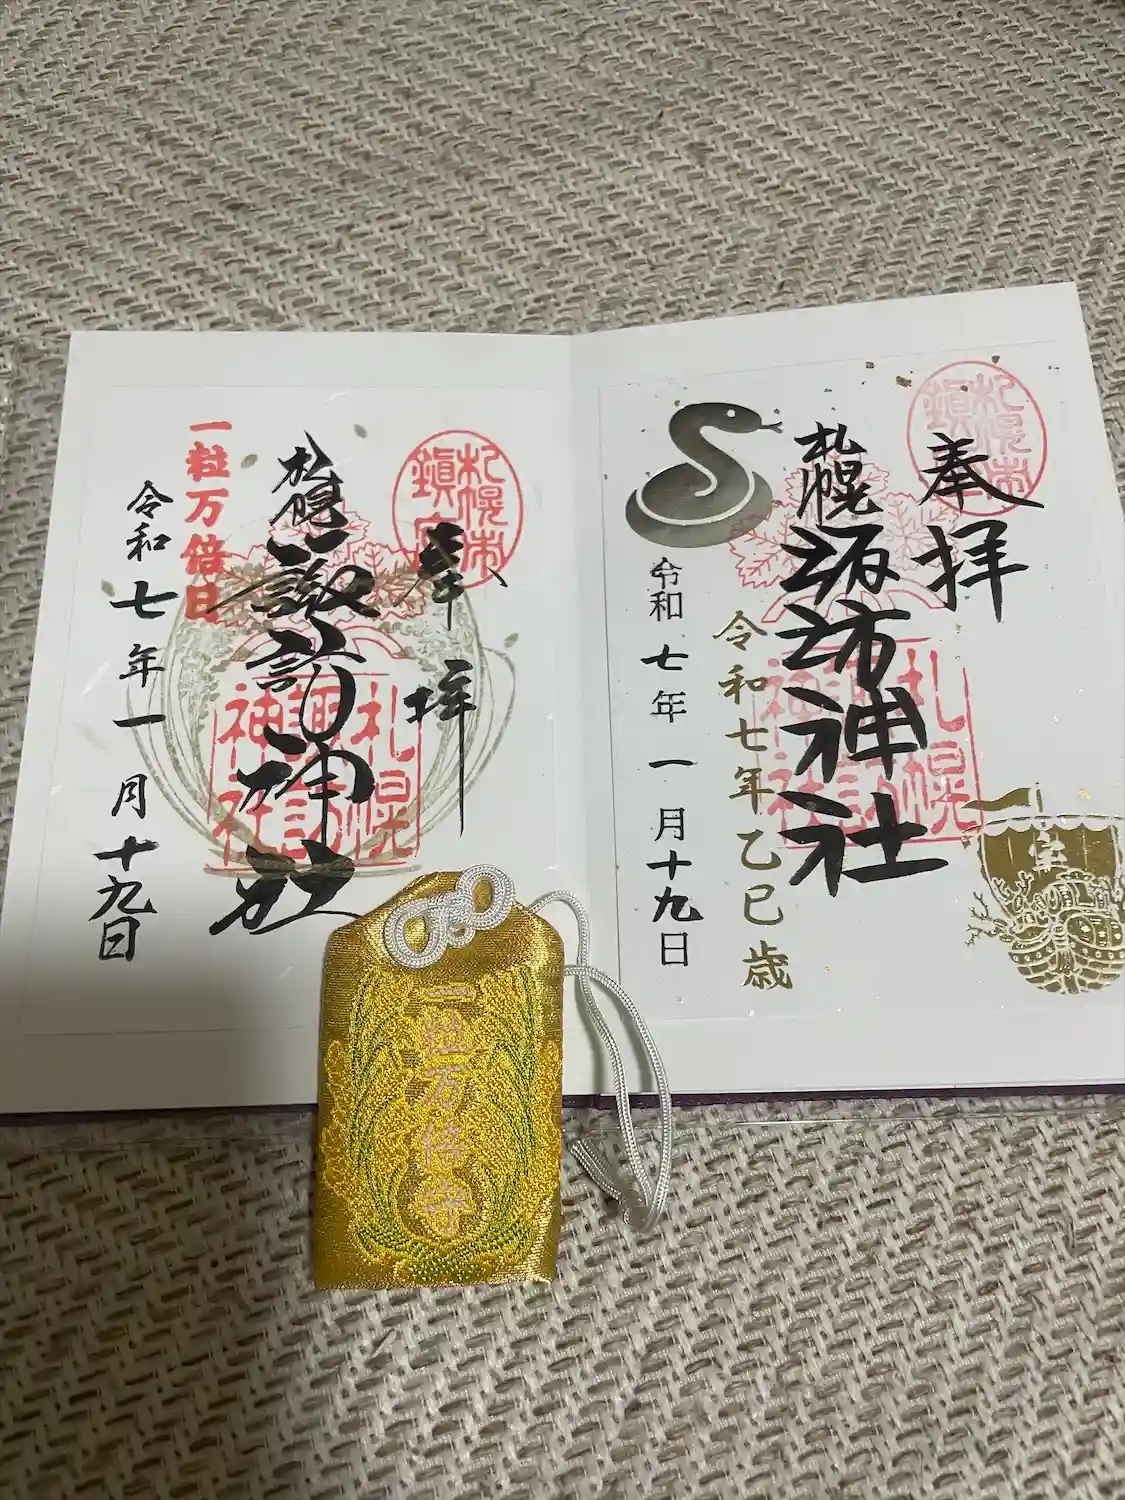 奉拝
札幌市鎮
札幌諏訪神社
札幌諏訪神社
令和七年乙巳歳
令和七年一月十九日
宝
奉拝
札幌市鎮
札幌諏訪神社
札幌諏訪神社
一粒万倍日
令和七年一月十九日
一粒万倍守